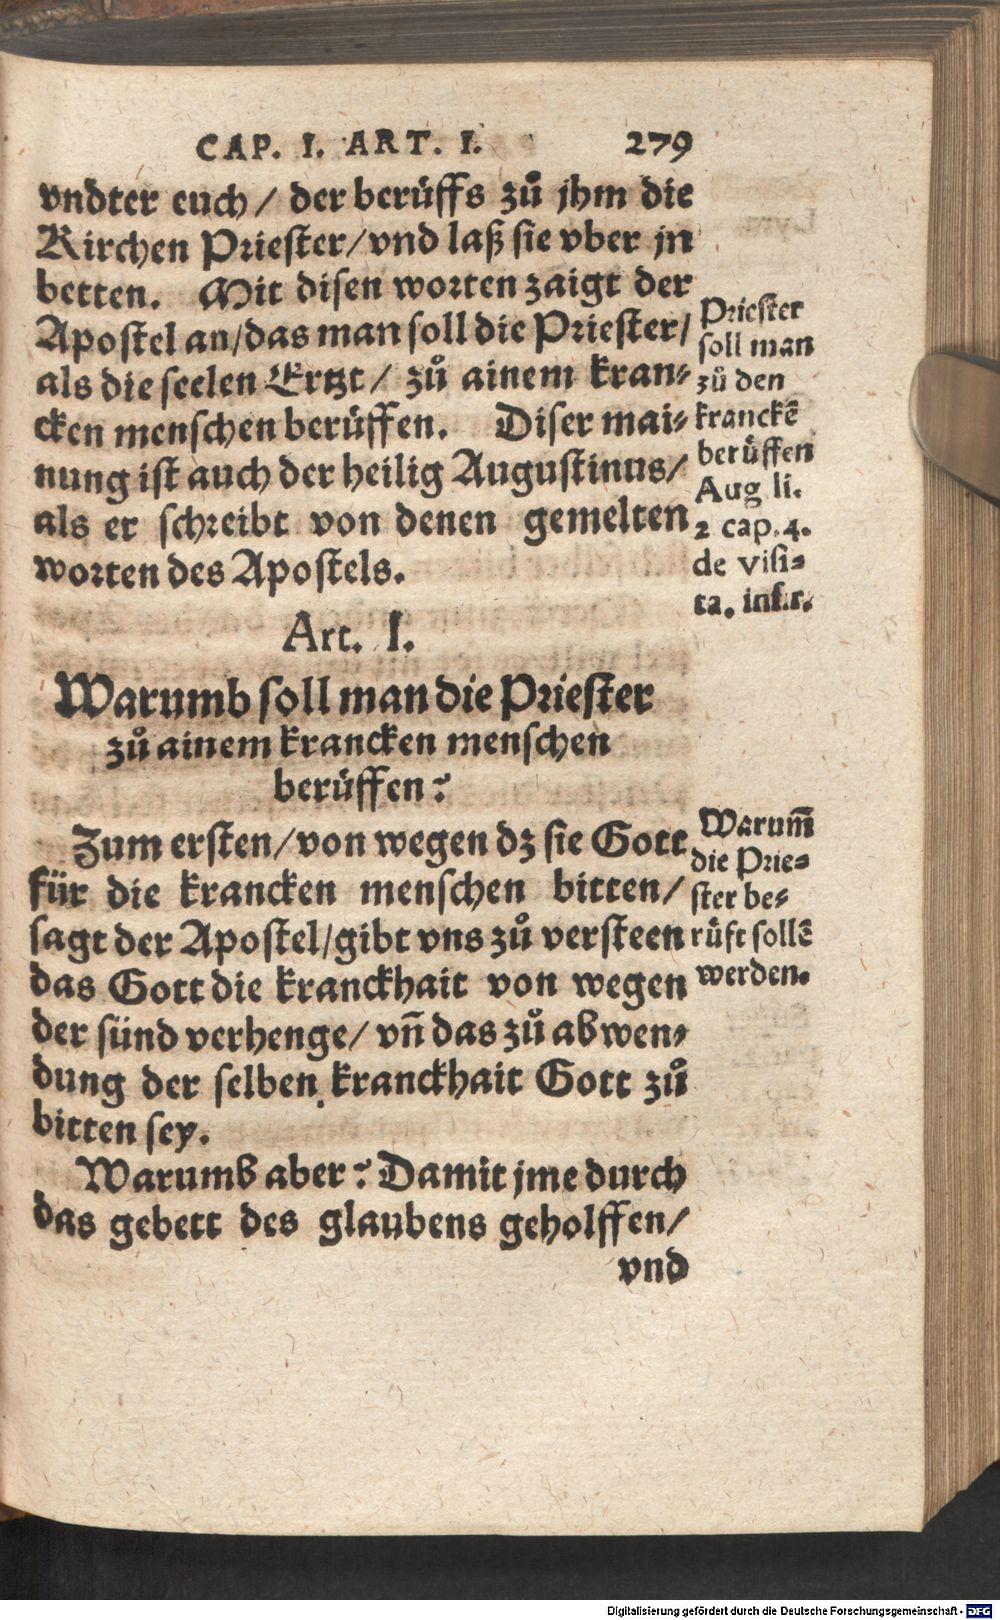 CAP. I. ART. I. 279
vndter euch / der berüffs zů jhm die
Kirchen Priester/vnd laß sie vber jn
betten. Mit disen worten zaigt der
Apostel an/das man soll die Priester/
als die seelen Ertzt / zů ainem kran-
cken menschen berüffen. Diser mai-
nung ist auch der heilig Augustinus/
als er schreibt von denen gemelten
worten des Apostels.
Priester
soll man
zů den
kranckē
berüffen
Aug li.
2 cap.4.
de visi-
ta. infir.
Art. I.
Warumb soll man die Priester
zů ainem krancken menschen
berüffen?
Zum ersten/von wegen dz sie Gott
für die krancken menschen bitten/
sagt der Apostel/gibt vns zů versteen
das Gott die kranckhait von wegen
der sünd verhenge/ vñ das zů abwen-
dung der selben kranckhait Gott zů
bitten sey.
Warum̄
die Prie-
ster be-
rüft sollē
werden.
Warumb aber? Damit jme durch
das gebett des glaubens geholffen/
vnd
Digitalisierung gefördert durch die Deutsche Forschungsgemeinschaft - DFG